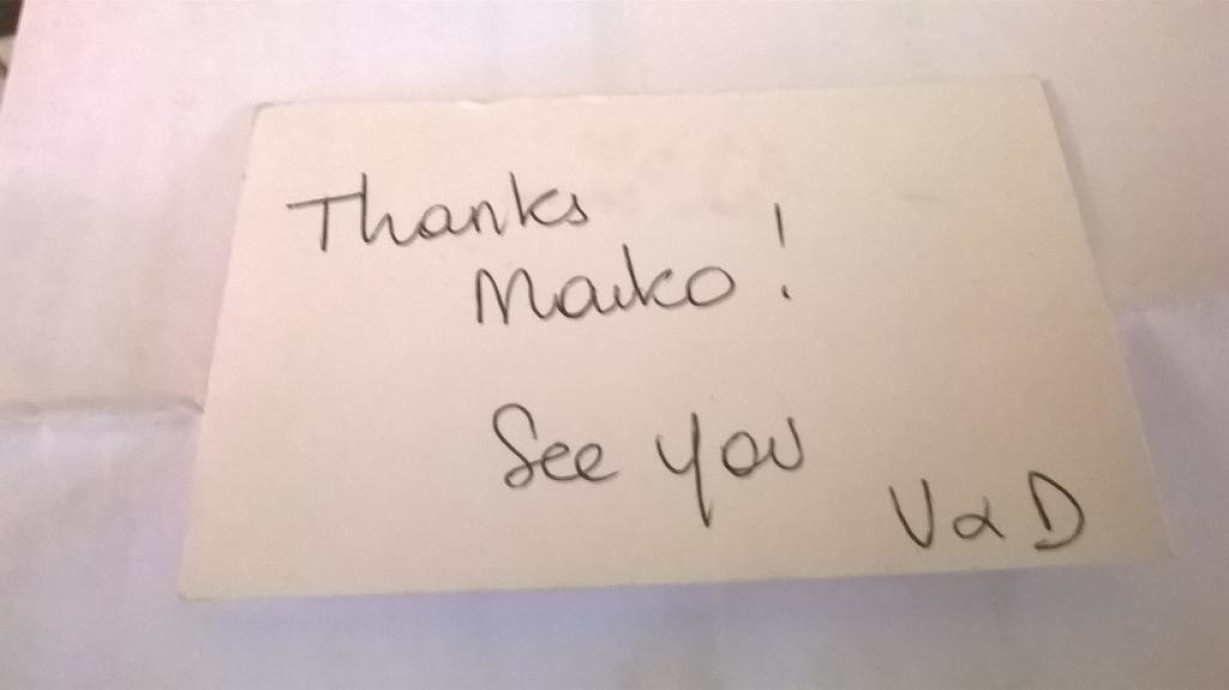 Thanks
Maiko!
See you
V & D